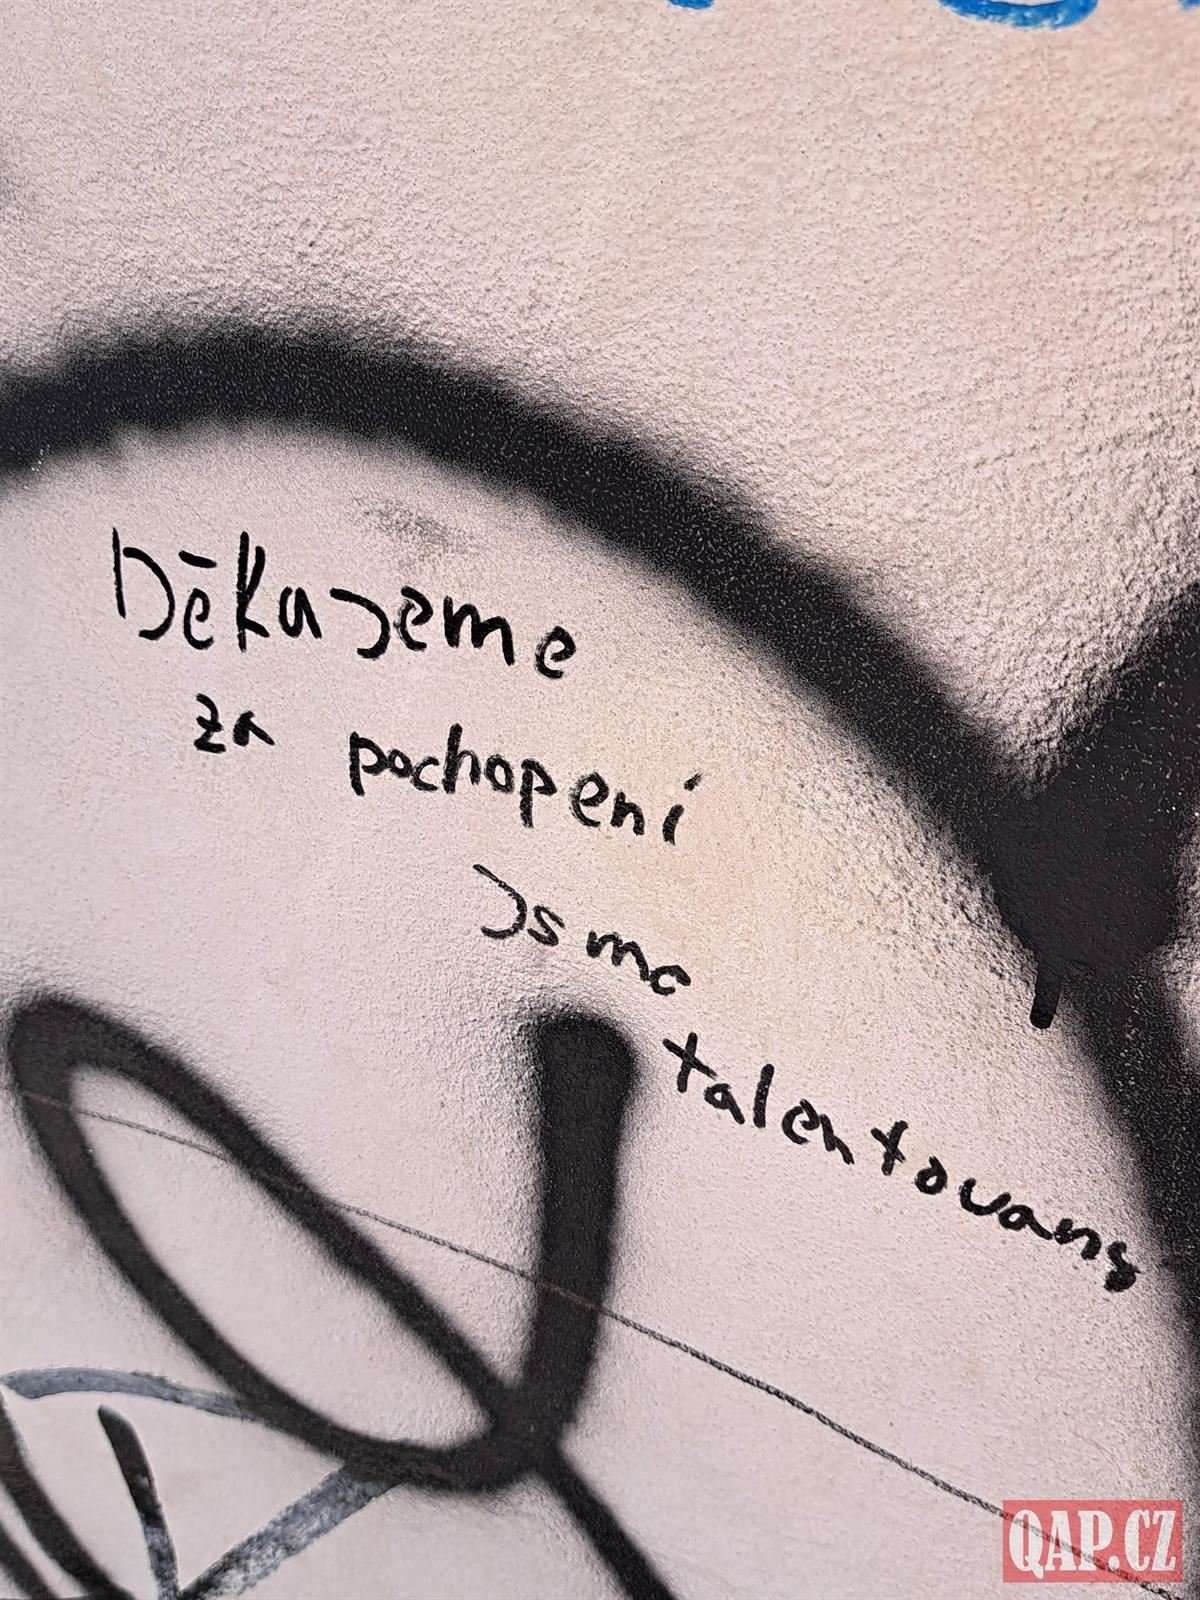 Děkajeme
za pochopení
Jsme
talentovany
QAP.CZ